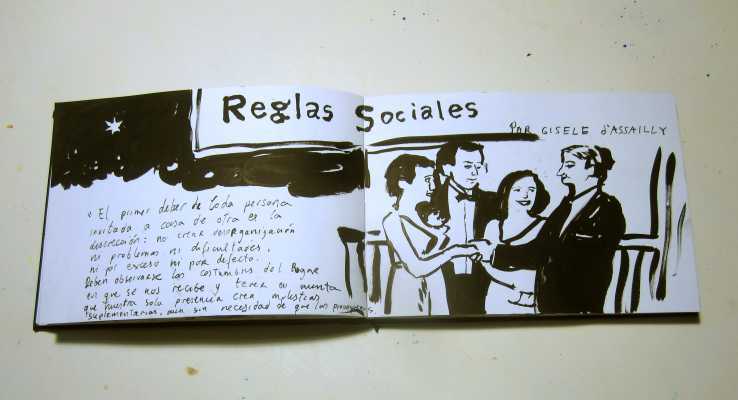 Reglas Sociales
POR GISELE d'ASSAILLY
"El primer deber de toda persona
invitada a casa de otra es la
discreción: no crear desorganización
ni problemas ni dificultades,
ni por exceso ni por defecto.
Deben observarse las costumbres del hogar
en que se nos recibe y tener en cuenta
que nuestra sola presencia crea molestias
suplementarias, aun sin necesidad de que las provoquemos.